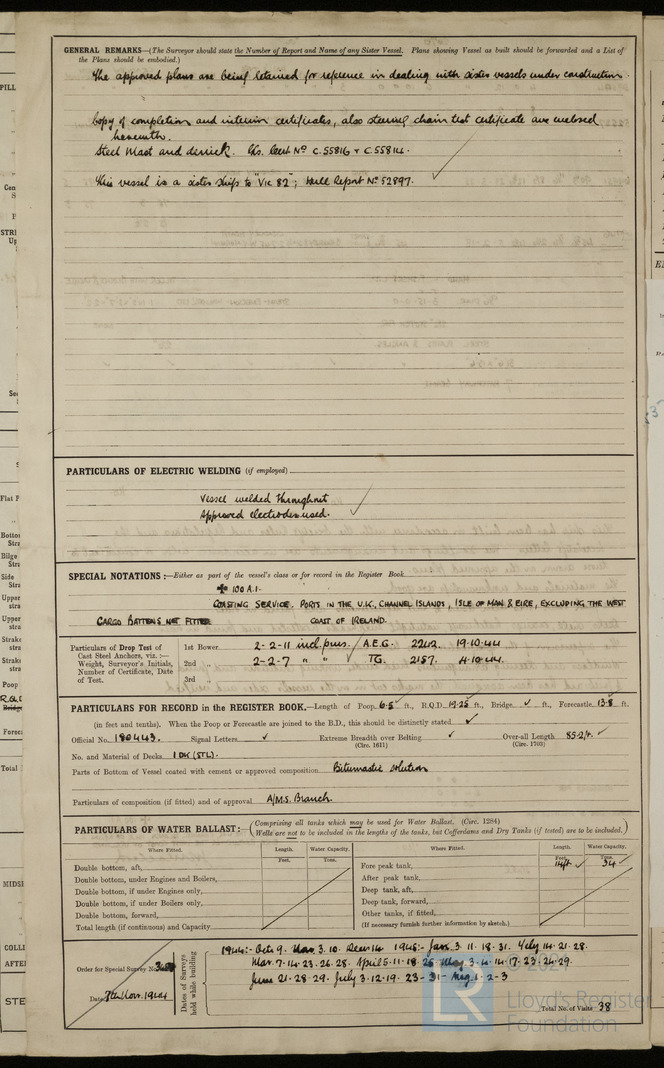 GENERAL REMARKS—(The Surveyor should state the Number of Report and Name of any Sister Vessel. Plans showing Vessel as built should be forwarded and a List of
the Plans should be embodied.)
The approved plans are being retained for reference in dealing with sister vessels under construction.
Copy of completion and interim certificates, also steering chain test certificate are enclosed
herewith.
Steel Mast and derrick. Cert Nº C.55816 + C.55814.
This vessel is a sister ship to "Vic 82"; Hull Report Nº 52897.
PARTICULARS OF ELECTRIC WELDING (if employed)
Vessel welded throughout
Approved electrodes used.
SPECIAL NOTATIONS:—Either as part of the vessel's class or for record in the Register Book
✠ 100 A.1.
COASTING SERVICE. PORTS IN THE U.K., CHANNEL ISLANDS, ISLE OF MAN & EIRE, EXCLUDING THE WEST
CARGO BATTENS NOT FITTED COAST OF IRELAND.
Particulars of Drop Test of
Cast Steel Anchors, viz.:—
Weight, Surveyor's Initials,
Number of Certificate, Date
of Test.
1st Bower 2-2-11 incl. pins. A.E.G. 2242. 19.10.44
2nd „ 2-2-7 " " T.G. 2157. 4.10.44.
3rd „
PARTICULARS FOR RECORD in the REGISTER BOOK.—Length of Poop 6.5 ft., R.Q.D. 19.25 ft., Bridge ✓ ft., Forecastle 13.8 ft.
(in feet and tenths). When the Poop or Forecastle are joined to the B.D., this should be distinctly stated ✓
Official No. 180443. Signal Letters ✓ Extreme Breadth over Belting ✓ Over-all Length 85.2 ft. ✓
(Circ. 1611) (Circ. 1703)
No. and Material of Decks 1 DK (STL).
Parts of Bottom of Vessel coated with cement or approved composition Bitumastic solution
Particulars of composition (if fitted) and of approval A/M.S. Branch.
PARTICULARS OF WATER BALLAST:—
(Comprising all tanks which may be used for Water Ballast. (Circ. 1284)
Wells are not to be included in the lengths of the tanks, but Cofferdams and Dry Tanks (if tested) are to be included.)
Where Fitted. Length. Water Capacity. Where Fitted. Length. Water Capacity.
Feet. Tons. Feet. Tons.
Double bottom, aft, Fore peak tank, 14ft ✓ 34 ✓
Double bottom, under Engines and Boilers, After peak tank,
Double bottom, if under Engines only, Deep tank, aft,
Double bottom, if under Boilers only, Deep tank, forward,
Double bottom, forward, Other tanks, if fitted,
Total length (if continuous) and Capacity (If necessary furnish further information by sketch.)
Order for Special Survey No.
Date 7th Nov. 1944
Dates of Surveys
held while building
1944:- Oct 9. Nov. 3. 10. Dec 14 1945:- Jan. 3. 11. 18. 31. Feby 14. 21. 28.
Mar. 7. 14. 23. 26. 28. April 5. 11. 18. 25 May. 3. 4. 14. 17. 23. 24. 29.
June 21. 28. 29. July 3. 12. 19. 23 - 31 - Aug. 1 - 2 - 3
Total No. of Visits 38
LR
Lloyd's Register
Foundation